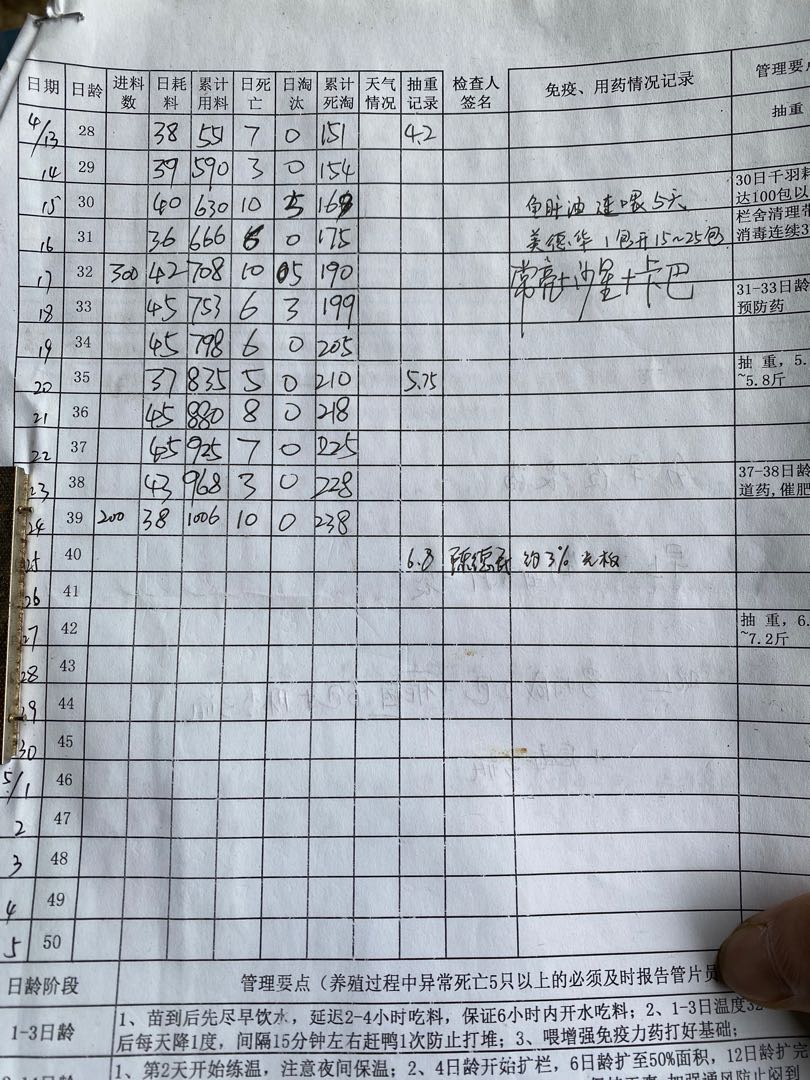 日期 日龄 进料数 日耗料 累计用料 日死亡 日淘汰 累计死淘 天气情况 抽重记录 检查人签名 免疫、用药情况记录 管理要点
抽重
4/13 28 38 551 7 0 151 4.2
14 29 39 590 3 0 154
15 30 40 630 10 5 169 鱼肝油 连喂5天 30日千羽耗
达100包以
16 31 36 666 6 0 175 美德华 1包开15~25包 栏舍清理带
消毒连续3
17 32 300 42 708 10 05 190 沙星+卡巴
18 33 45 753 6 3 199 31-33日龄
预防药
19 34 45 798 6 0 205
20 35 37 835 5 0 210 5.75 抽重，5.
~5.8斤
21 36 45 880 8 0 218
22 37 45 925 7 0 225
23 38 43 968 3 0 228 37-38日龄
道药,催肥
24 39 200 38 1006 10 0 238
25 40 6.8 约3%光板
26 41
27 42 抽重，6.
~7.2斤
28 43
29 44
30 45
5/1 46
2 47
3 48
4 49
5 50
日龄阶段 管理要点（养殖过程中异常死亡5只以上的必须及时报告管片员
1-3日龄 1、苗到后先尽早饮水，延迟2-4小时吃料，保证6小时内开水吃料；2、1-3日温度32
后每天降1度，间隔15分钟左右赶鸭1次防止打堆；3、喂增强免疫力药打好基础；
1、第2天开始练温，注意夜间保温；2、4日龄开始扩栏，6日龄扩至50%面积，12日龄扩完